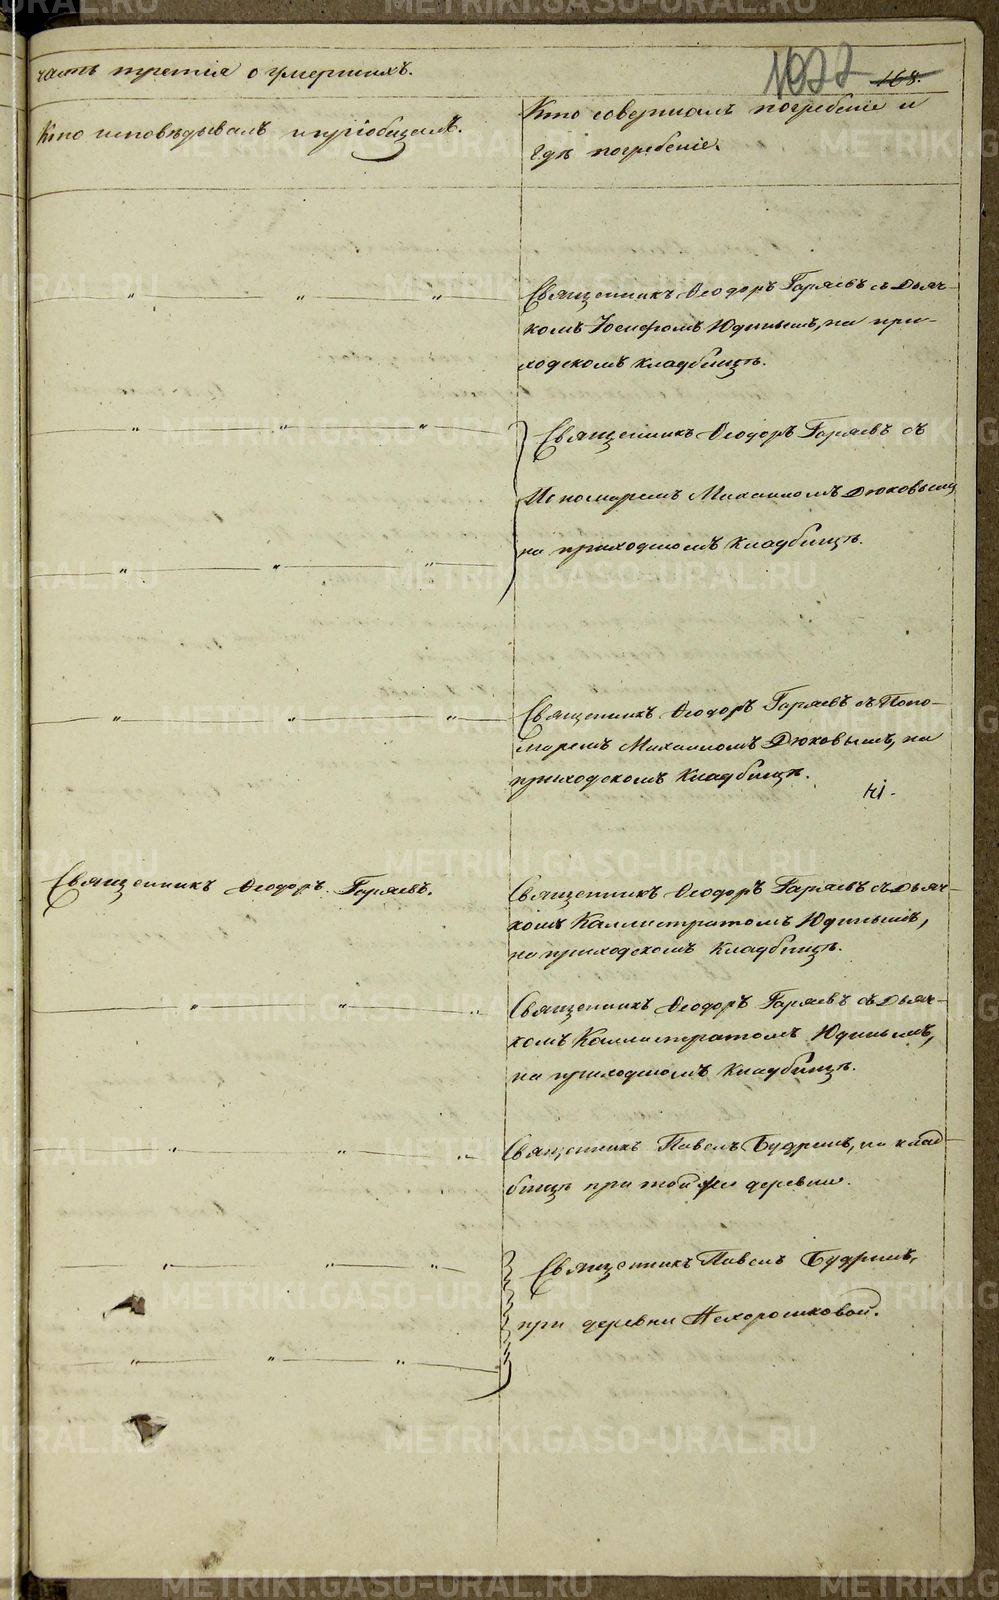 часть третія о умершихъ.
1022 168.
Кто исповѣдывалъ и пріобщалъ.
Кто совершалъ погребеніе и
гдѣ погребеніе.
Священникъ Ѳеодоръ Гаряевъ съ Дьяч-
комъ Іосифомъ Юдинымъ, на при-
ходскомъ кладбищѣ.
Священникъ Ѳеодоръ Гаряевъ съ
Пономаремъ Михаиломъ Дюковымъ
на приходскомъ кладбищѣ.
Священникъ Ѳеодоръ Гаряевъ съ Поно-
маремъ Михаиломъ Дюковымъ, на
приходскомъ кладбищѣ.
Священникъ Ѳеодоръ Гаряевъ.
Священникъ Ѳеодоръ Гаряевъ съ Дьяч-
комъ Каллистратомъ Юдинымъ,
на приходскомъ кладбищѣ.
Священникъ Ѳеодоръ Гаряевъ съ Дьяч-
комъ Каллистратомъ Юдинымъ,
на приходскомъ кладбищѣ.
Священникъ Павелъ Будринъ, на клад-
бищѣ при той же деревни.
Священникъ Павелъ Будринъ,
при деревни Нехорошковой.
METRIKI.GASO-URAL.RU